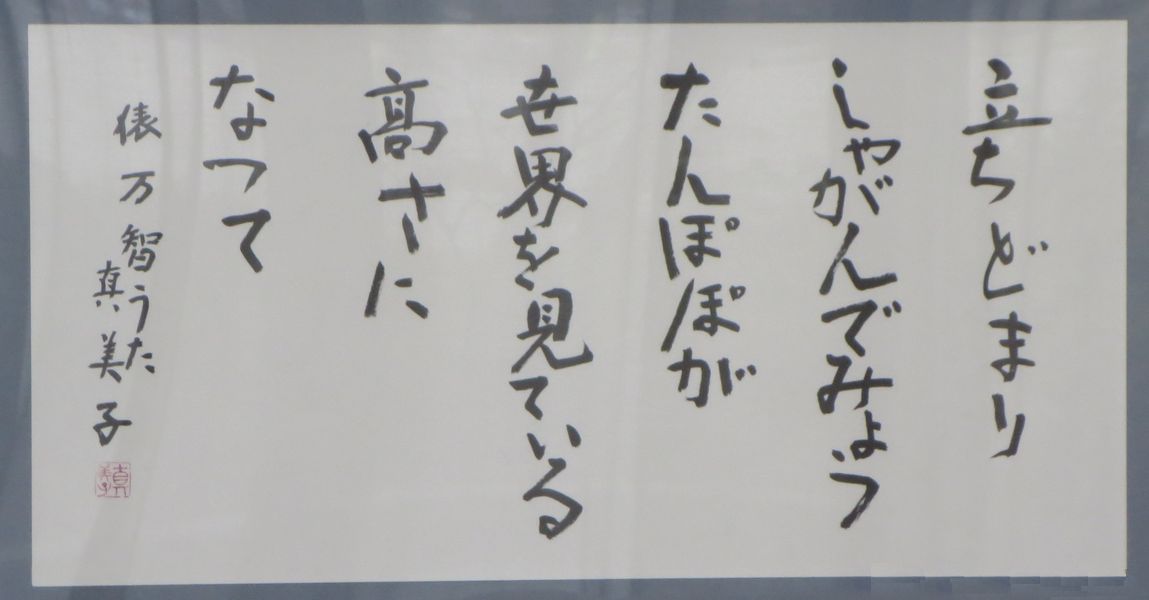 立ちどまり
しゃがんでみよう
たんぽぽが
世界を見ている
高さに
なって
俵万智うた
真美子
真美子